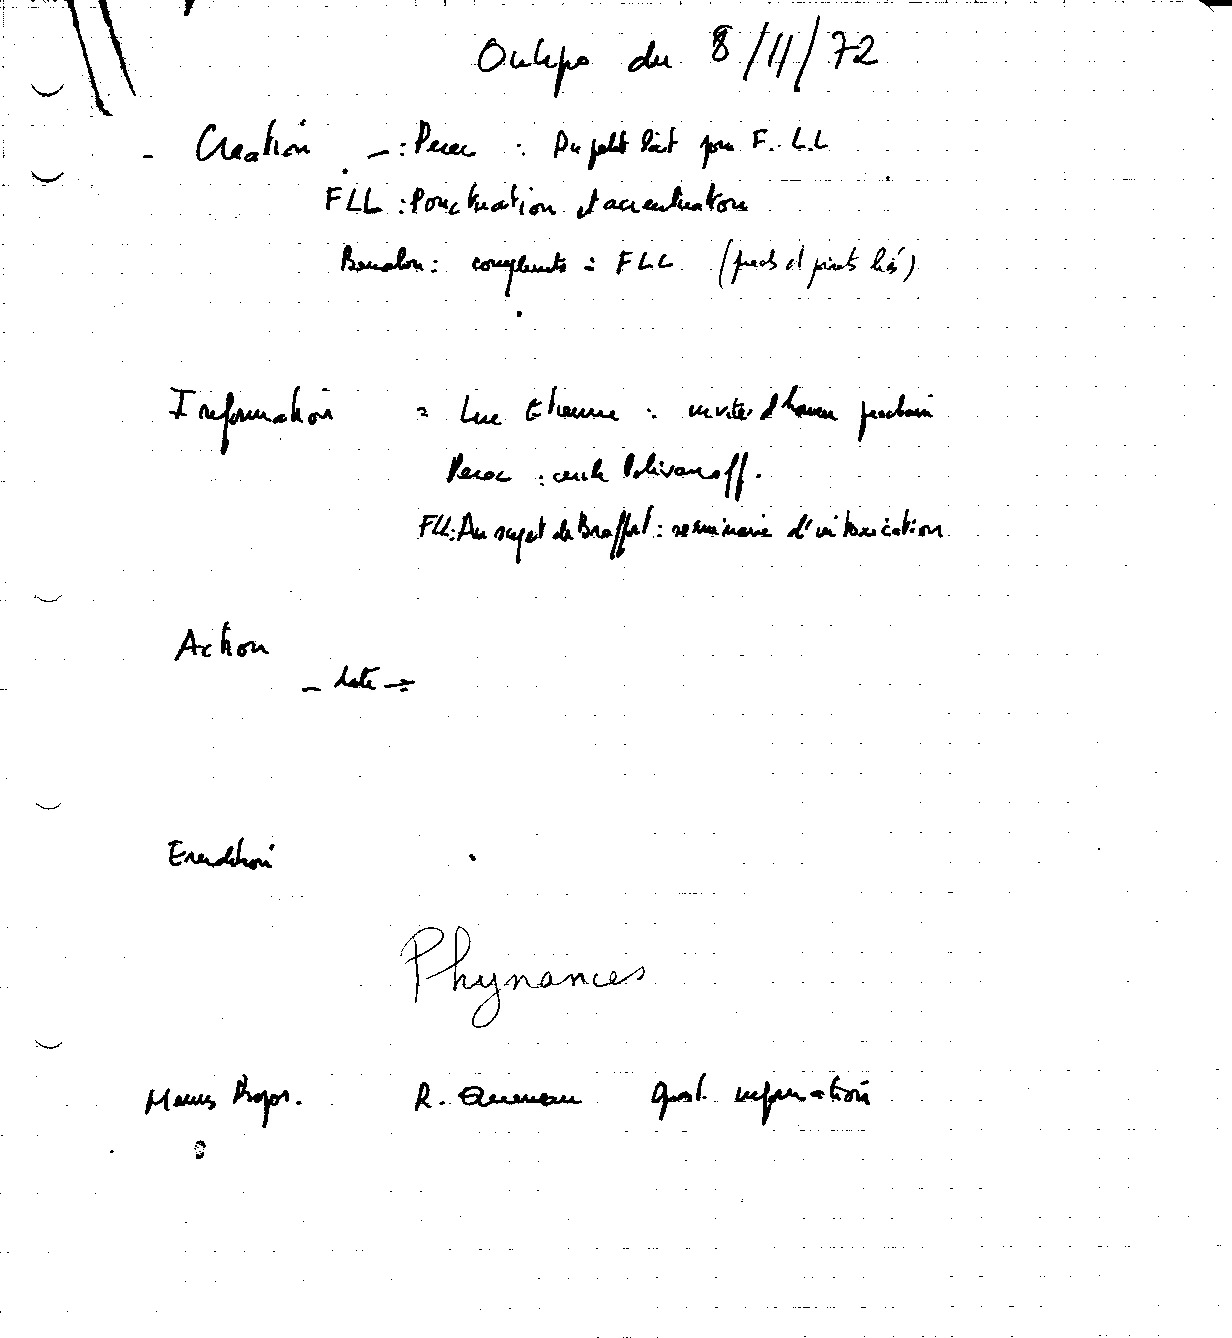 Oulipo du 8/11/72
- Création - : Perec : Du petit Lait pour F.L.L
FLL : Ponctuation et accentuation
Benabou : compléments à FLL (pieds et points liés)
Information = Luc Etienne : invité d'honneur prochain
Perec : cercle Polivanoff.
FLL : Au sujet de Braffort : séminaire d'intoxication
Action
- date -
Erudition
Phynances
Menus Propos. R. Queneau quest. information